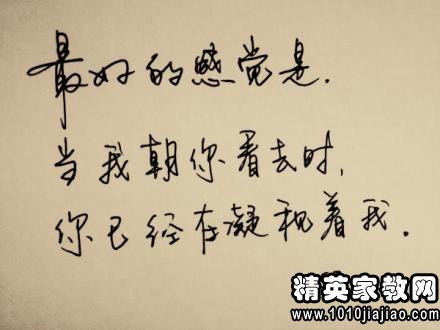 最好的感觉是.
当我朝你看去时,
你已经在凝视着我.
精英家教网
www.1010jiajiao.com